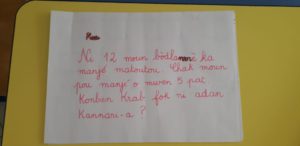 Ni 12 moun bòdlanmè ka
manjé matoutou. Chak moun
pou manjé o mwen 5 pat
Konben Krab fok ni adan
Kannari-a ?